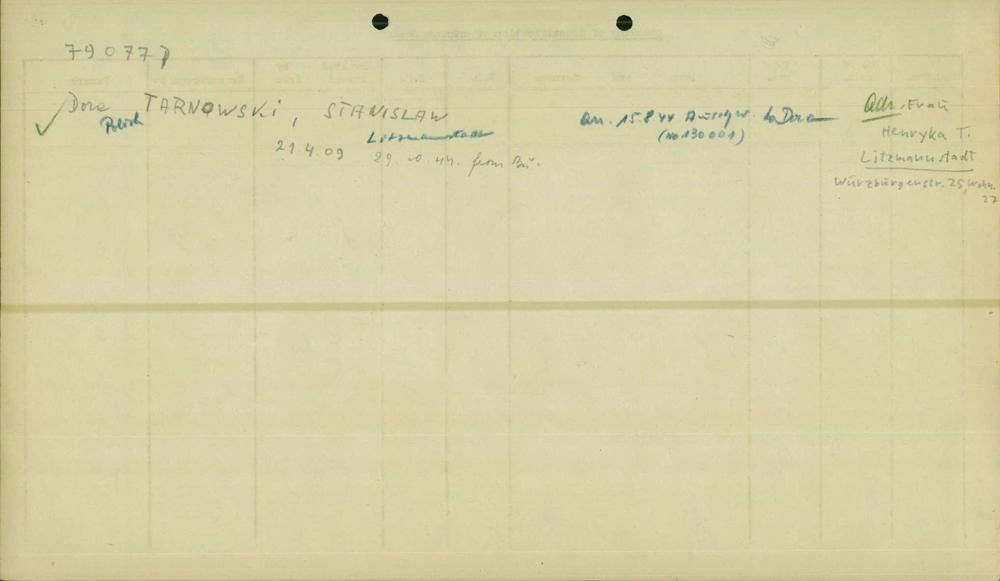 79077
Dora TARNOWSKI, STANISLAW
Polish
21.4.09 Litzmannstadt
from Bu.
arr. 15.8.44 Auschw. to Dora
(No 130001)
Adr. Frau
Henryka T.
Litzmannstadt
Würzburgerstr. 25, Wohn.
27